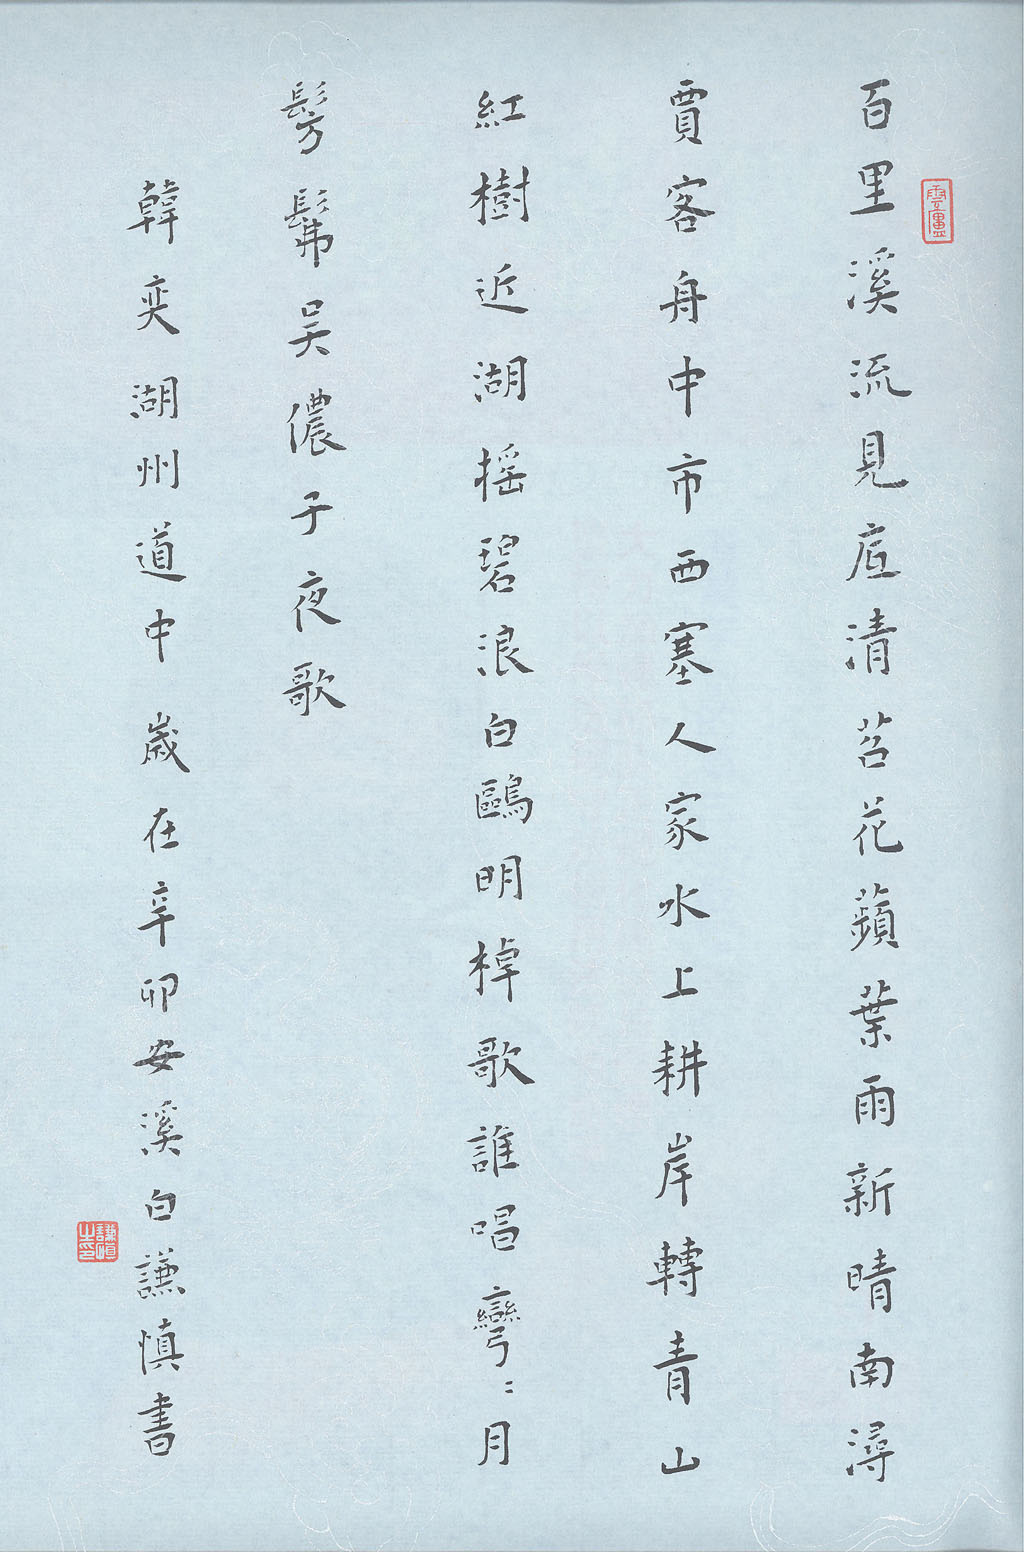 百里溪流見底清苕花蘋葉雨新晴南潯
賈客舟中市西塞人家水上耕岸轉青山
紅樹近湖摇碧浪白鷗明棹歌誰唱彎〻月
髣髴吴儂子夜歌
韓奕湖州道中歲在辛卯安溪白謙慎書
雲廬
謙慎之印